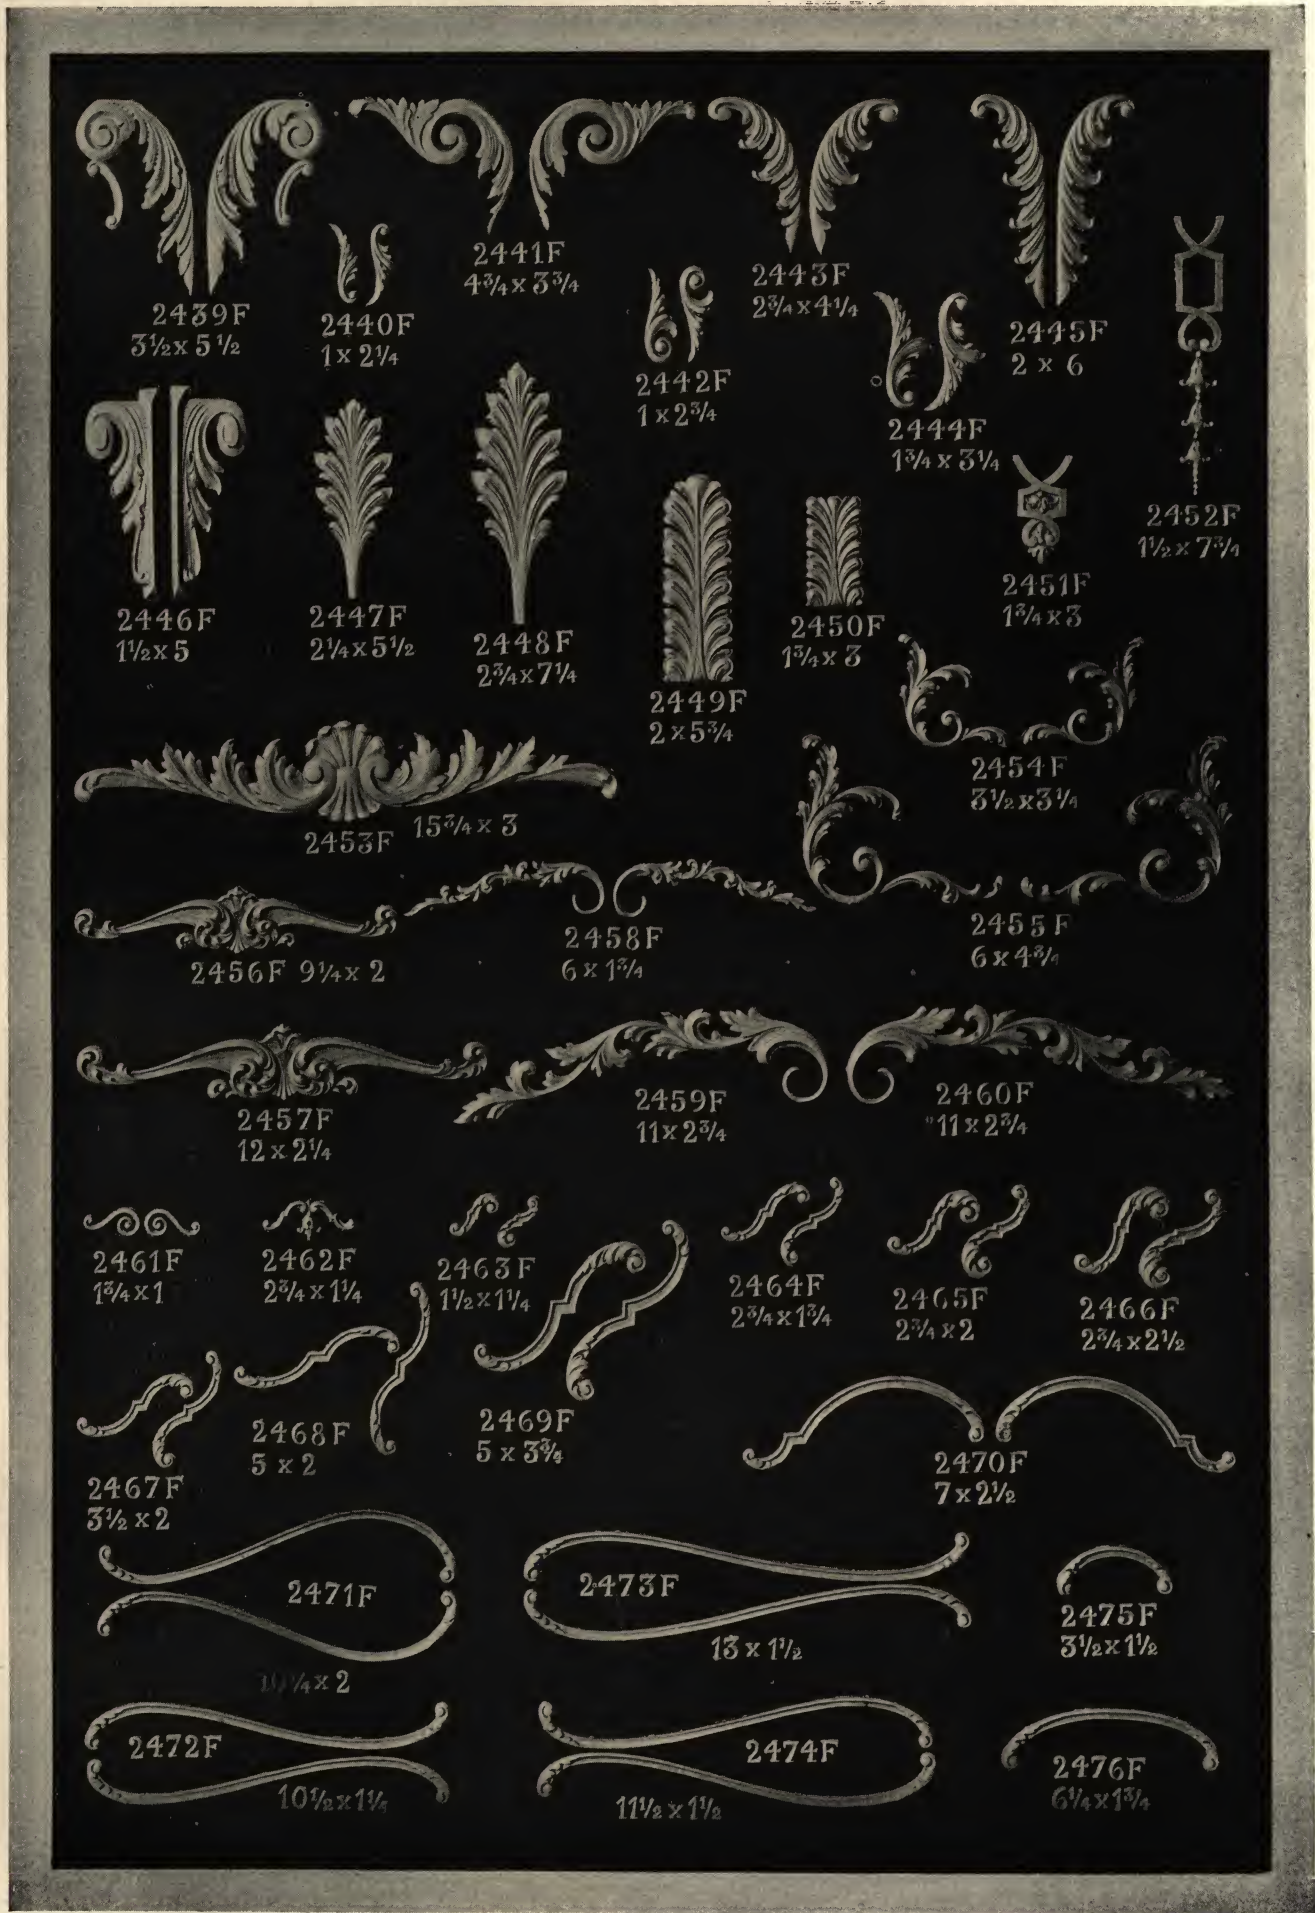 2439F
3½ x 5½
2440F
1 x 2¼
2441F
4¾ x 3¾
2442F
1 x 2¾
2443F
2¾ x 4¼
2444F
1¾ x 3¼
2445F
2 x 6
2446F
1½ x 5
2447F
2¼ x 5½
2448F
2¾ x 7¼
2449F
2 x 5¾
2450F
1¾ x 3
2451F
1¾ x 3
2452F
1½ x 7¾
2453F 15¾ x 3
2454F
3½ x 3¼
2455F
6 x 4¾
2456F 9¼ x 2
2458F
6 x 1¾
2457F
12 x 2¼
2459F
11 x 2¾
2460F
11 x 2¾
2461F
1¾ x 1
2462F
2¾ x 1¼
2463F
1½ x 1¼
2464F
2¾ x 1¾
2465F
2¾ x 2
2466F
2¾ x 2½
2467F
3½ x 2
2468F
5 x 2
2469F
5 x 3¾
2470F
7 x 2½
2471F
x 2
2473F
13 x 1½
2475F
3½ x 1½
2472F
10½ x 1¼
2474F
11½ x 1½
2476F
6¼ x 1¾